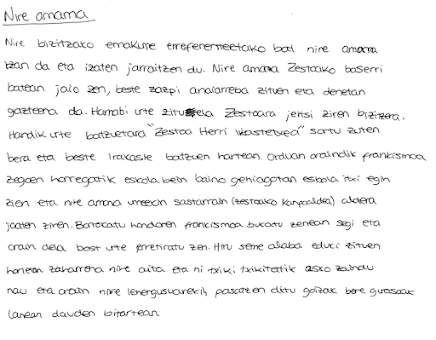 Nire amama
Nire bizitzako emakume erreferenteetako bat nire amama
izan da eta izaten jarraitzen du. Nire amama Zestoako baserri
batean jaio zen, beste zazpi anaiarreba zituen eta denetan
gazteena da. Hamabi urte zituela Zestoara jeitsi ziren bizitzera.
Handik urte batzuetara "Zestoa Herri Ikastetxea" sortu zuten
bera eta beste Irakasle batzuen hartean. Orduan oraindik frankismoa
zegoen horregatik eskola behin baino gehiagotan eskola itxi egin
zien eta nire amama umeekin sastarrain (zestoako kanpoaldea) aldera
joaten ziren. Borrokatu hondoren frankismoa bukatu zenean segi eta
orain dela bost urte erretiratu zen. Hiru seme alaba eduki zituen
horien zaharrena nire aita eta ni txiki txikitatik asko zaindu
nau eta orain nire lehengusuarekin pasatzen ditu goizak bere gurasoak
lanean dauden bitartean.